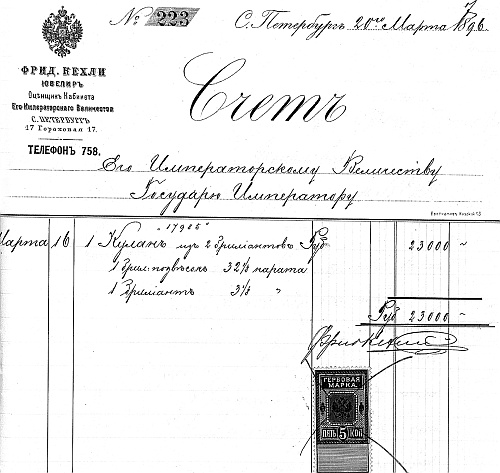 № 223
С. Петербургъ 20го Марта 1896
ФРИД. КЕХЛИ
ЮВЕЛИРЪ
Оцѣнщикъ Кабинета
Его Императорскаго Величества
С. ПЕТЕРБУРГЪ
17 Гороховая 17.
ТЕЛЕФОНЪ 758.
Счетъ
Его Императорскому Величеству
Государю Императору
"17905"
Марта 16 1 Кулонъ изъ 2 брилiантовъ Руб 23000 "
1 брил: подвѣсокъ 32 карата
1 Брилiантъ "
Руб 23000 "
ГЕРБОВАЯ
МАРКА.
ПЯТЬ 5 КОП.